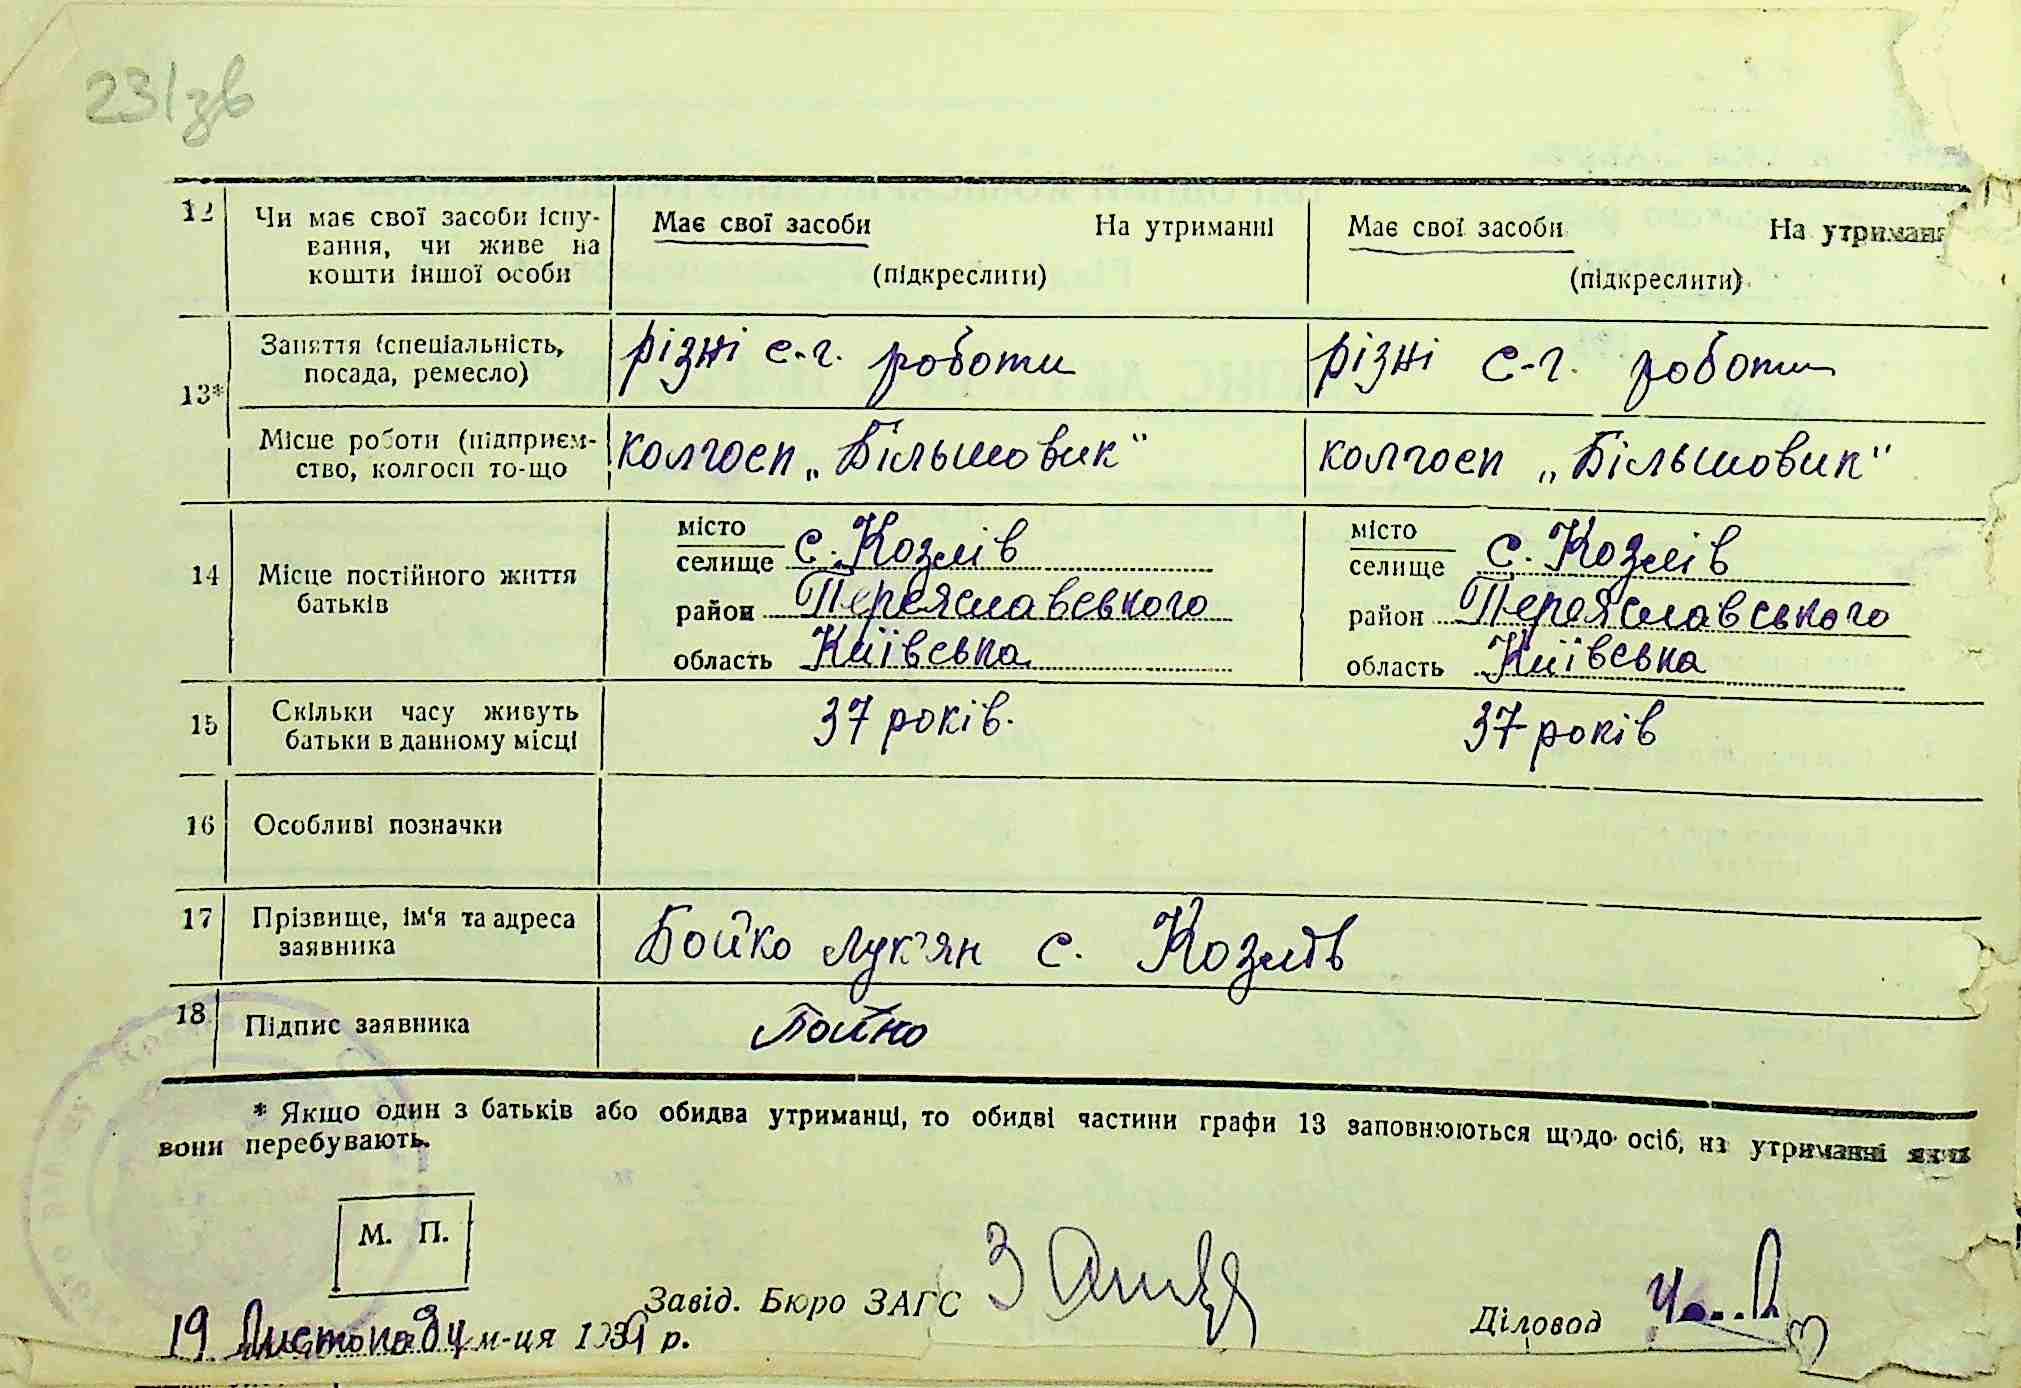 231зв
12 Чи має свої засоби існу- Має свої засоби На утриманні Має свої засоби На утриманн
вання, чи живе на
кошти іншої особи (підкреслити) (підкреслити)
13* Заняття (спеціальність, різні с-г. роботи різні с-г. роботи
посада, ремесло)
Місце роботи (підприєм- колгосп „Більшовик" колгосп „Більшовик"
ство, колгосп то-що
14 Місце постійного життя місто місто
батьків селище с. Козлів селище с. Козлів
район Переяславського район Переяславського
область Київська область Київська
15 Скільки часу живуть 37 років. 37 років
батьки в данному місці
16 Особливі позначки
17 Прізвище, ім'я та адреса Бойко Лук'ян с. Козлів
заявника
18 Підпис заявника Бойко
* Якщо один з батьків або обидва утриманці, то обидві частини графи 13 заповнюються щодо осіб, на утриманні яких
вони перебувають.
М. П.
Завід. Бюро ЗАГС
Діловод
19 Листопаду м-ця 1939 р.